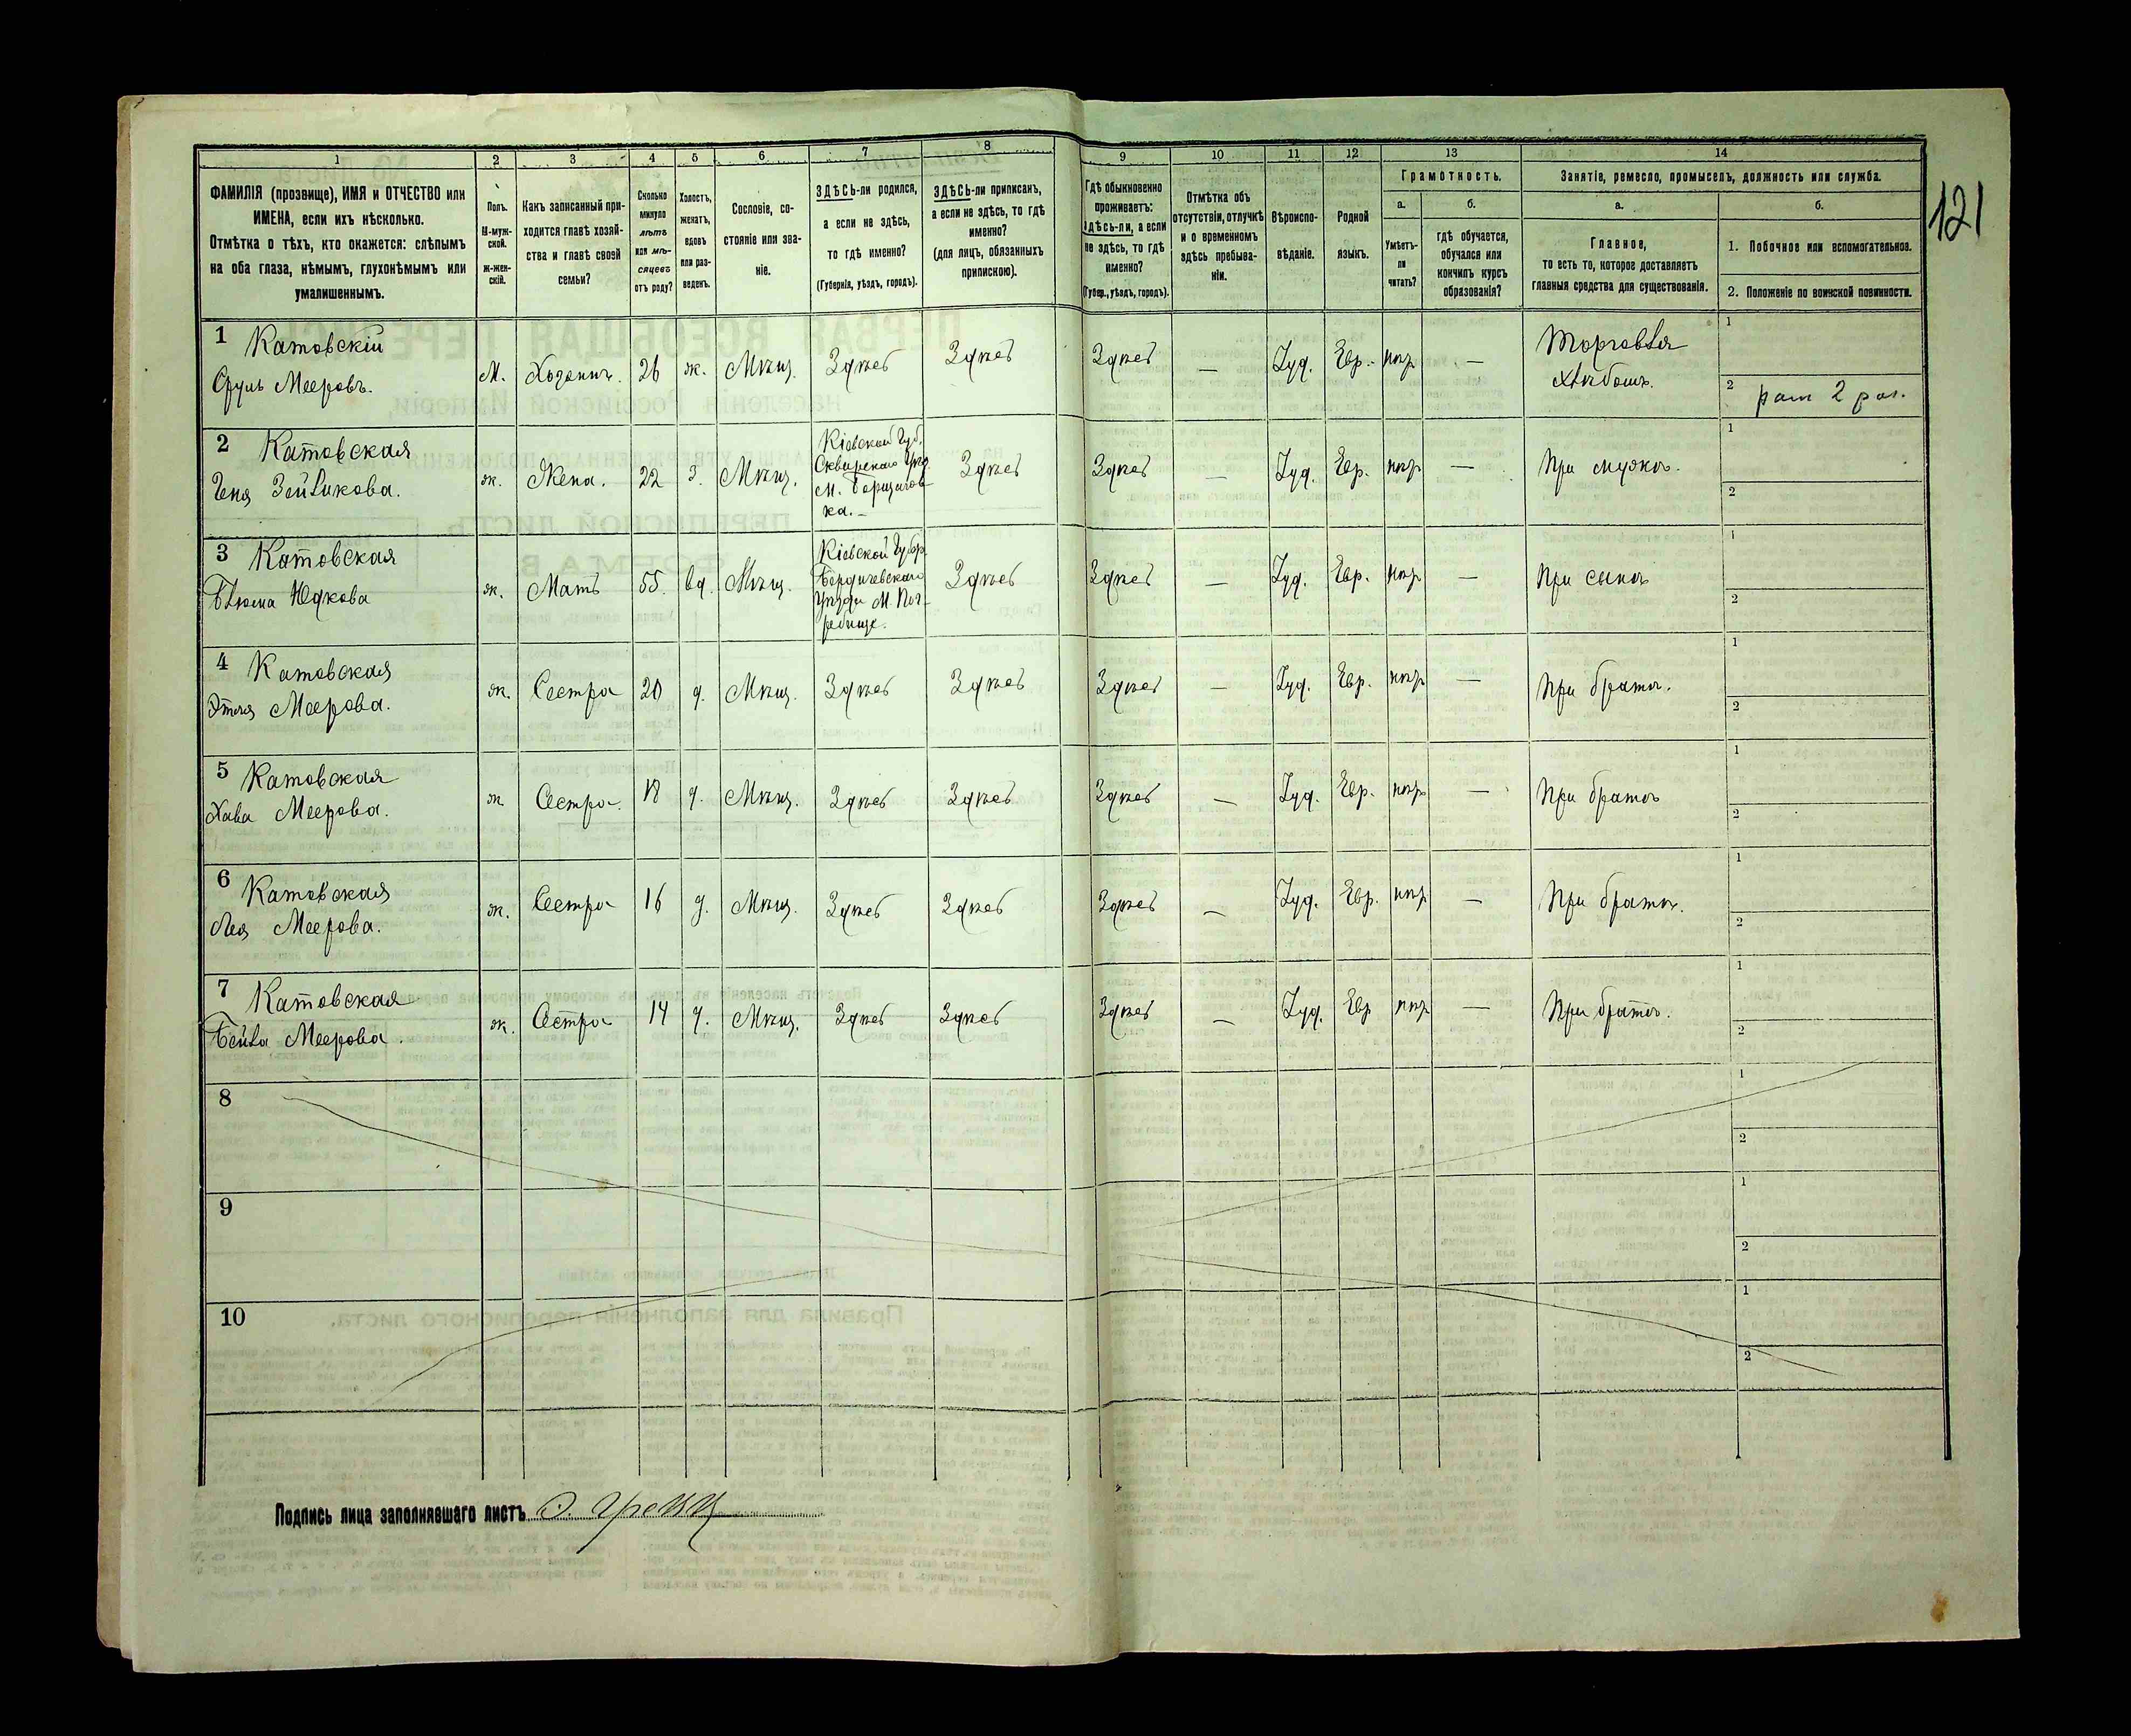 121
1 2 3 4 5 6 7 8 9 10 11 12 13 14
ФАМИЛІЯ (прозвище), ИМЯ и ОТЧЕСТВО или
ИМЕНА, если ихъ нѣсколько.
Отмѣтка о тѣхъ, кто окажется: слѣпымъ
на оба глаза, нѣмымъ, глухонѣмымъ или
умалишеннымъ.
Полъ.
М-муж-
ской.
Ж-жен-
скій.
Какъ записанный при-
ходится главѣ хозяй-
ства и главѣ своей
семьи?
Сколько
минуло
лѣтъ
или мѣ-
сяцевъ
отъ роду?
Холостъ,
женатъ,
вдовъ
или раз-
веденъ.
Сословіе, со-
стояніе или зва-
ніе.
ЗДѢСЬ-ли родился,
а если не здѣсь,
то гдѣ именно?
(Губернія, уѣздъ, городъ).
ЗДѢСЬ-ли приписанъ,
а если не здѣсь, то гдѣ
именно?
(для лицъ, обязанныхъ
припискою).
Гдѣ обыкновенно
проживаетъ:
здѣсь-ли, а если
не здѣсь, то гдѣ
именно?
(Губер., уѣздъ, городъ).
Отмѣтка объ
отсутствіи, отлучкѣ
и о временномъ
здѣсь пребыва-
ніи.
Вѣроиспо-
вѣданіе.
Родной
языкъ.
Грамотность.
а.
Умѣетъ-
ли
читать?
б.
гдѣ обучается,
обучался или
кончилъ курсъ
образованія?
Занятіе, ремесло, промыселъ, должность или служба.
а.
Главное,
то есть то, которое доставляетъ
главныя средства для существованія.
б.
1. Побочное или вспомогательное.
2. Положеніе по воинской повинности.
1 Катовскій
Сруль Мееровъ. м. Хозяинъ. 26 ж. Мѣщ. Здѣсь Здѣсь Здѣсь — Іуд. Евр. —
Торговля
хлѣбомъ.
1
2 рат 2 раз.
2 Катовская
Геня Зейликова. ж. Жена. 22 З. Мѣщ.
Кіевской Губ.
Сквирскаго Уѣз.
м. Борщагов-
ка.
Здѣсь Здѣсь — Іуд. Евр. — При мужѣ.
1
2
3 Катовская
Блюма Юдкова ж. Мать 55. вд. Мѣщ.
Кіевской Губер.
Бердичевскаго
Уѣзда М. Пог-
ребище.
Здѣсь Здѣсь — Іуд. Евр. — При сынѣ
1
2
4 Катовская
Этля Меерова. ж. Сестра 20 д. Мѣщ. Здѣсь Здѣсь Здѣсь — Іуд. Евр. — При братѣ.
1
2
5 Катовская
Хава Меерова. ж. Сестра. 18 д. Мѣщ. Здѣсь Здѣсь Здѣсь — Іуд. Евр. — При братѣ
1
2
6 Катовская
Лея Меерова. ж. Сестра 16 д. Мѣщ. Здѣсь Здѣсь Здѣсь — Іуд. Евр. — При братѣ.
1
2
7 Катовская
Бейла Меерова. ж. Сестра 14 д. Мѣщ. Здѣсь Здѣсь Здѣсь — Іуд. Евр — При братѣ.
1
2
8
1
2
9
1
2
10
1
2
Подпись лица заполнявшаго листъ